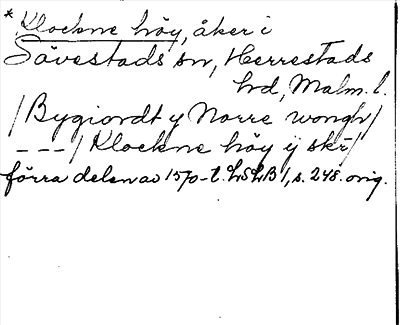 * Klockne höy, åker i
Sövestads sn, Herrestads
hd, Malm. l.
/Bygiordt y Norre wongh/
---/Klockne höy ij skr/
förra delen av 1570-t. LSLB 1, s. 248. orig.